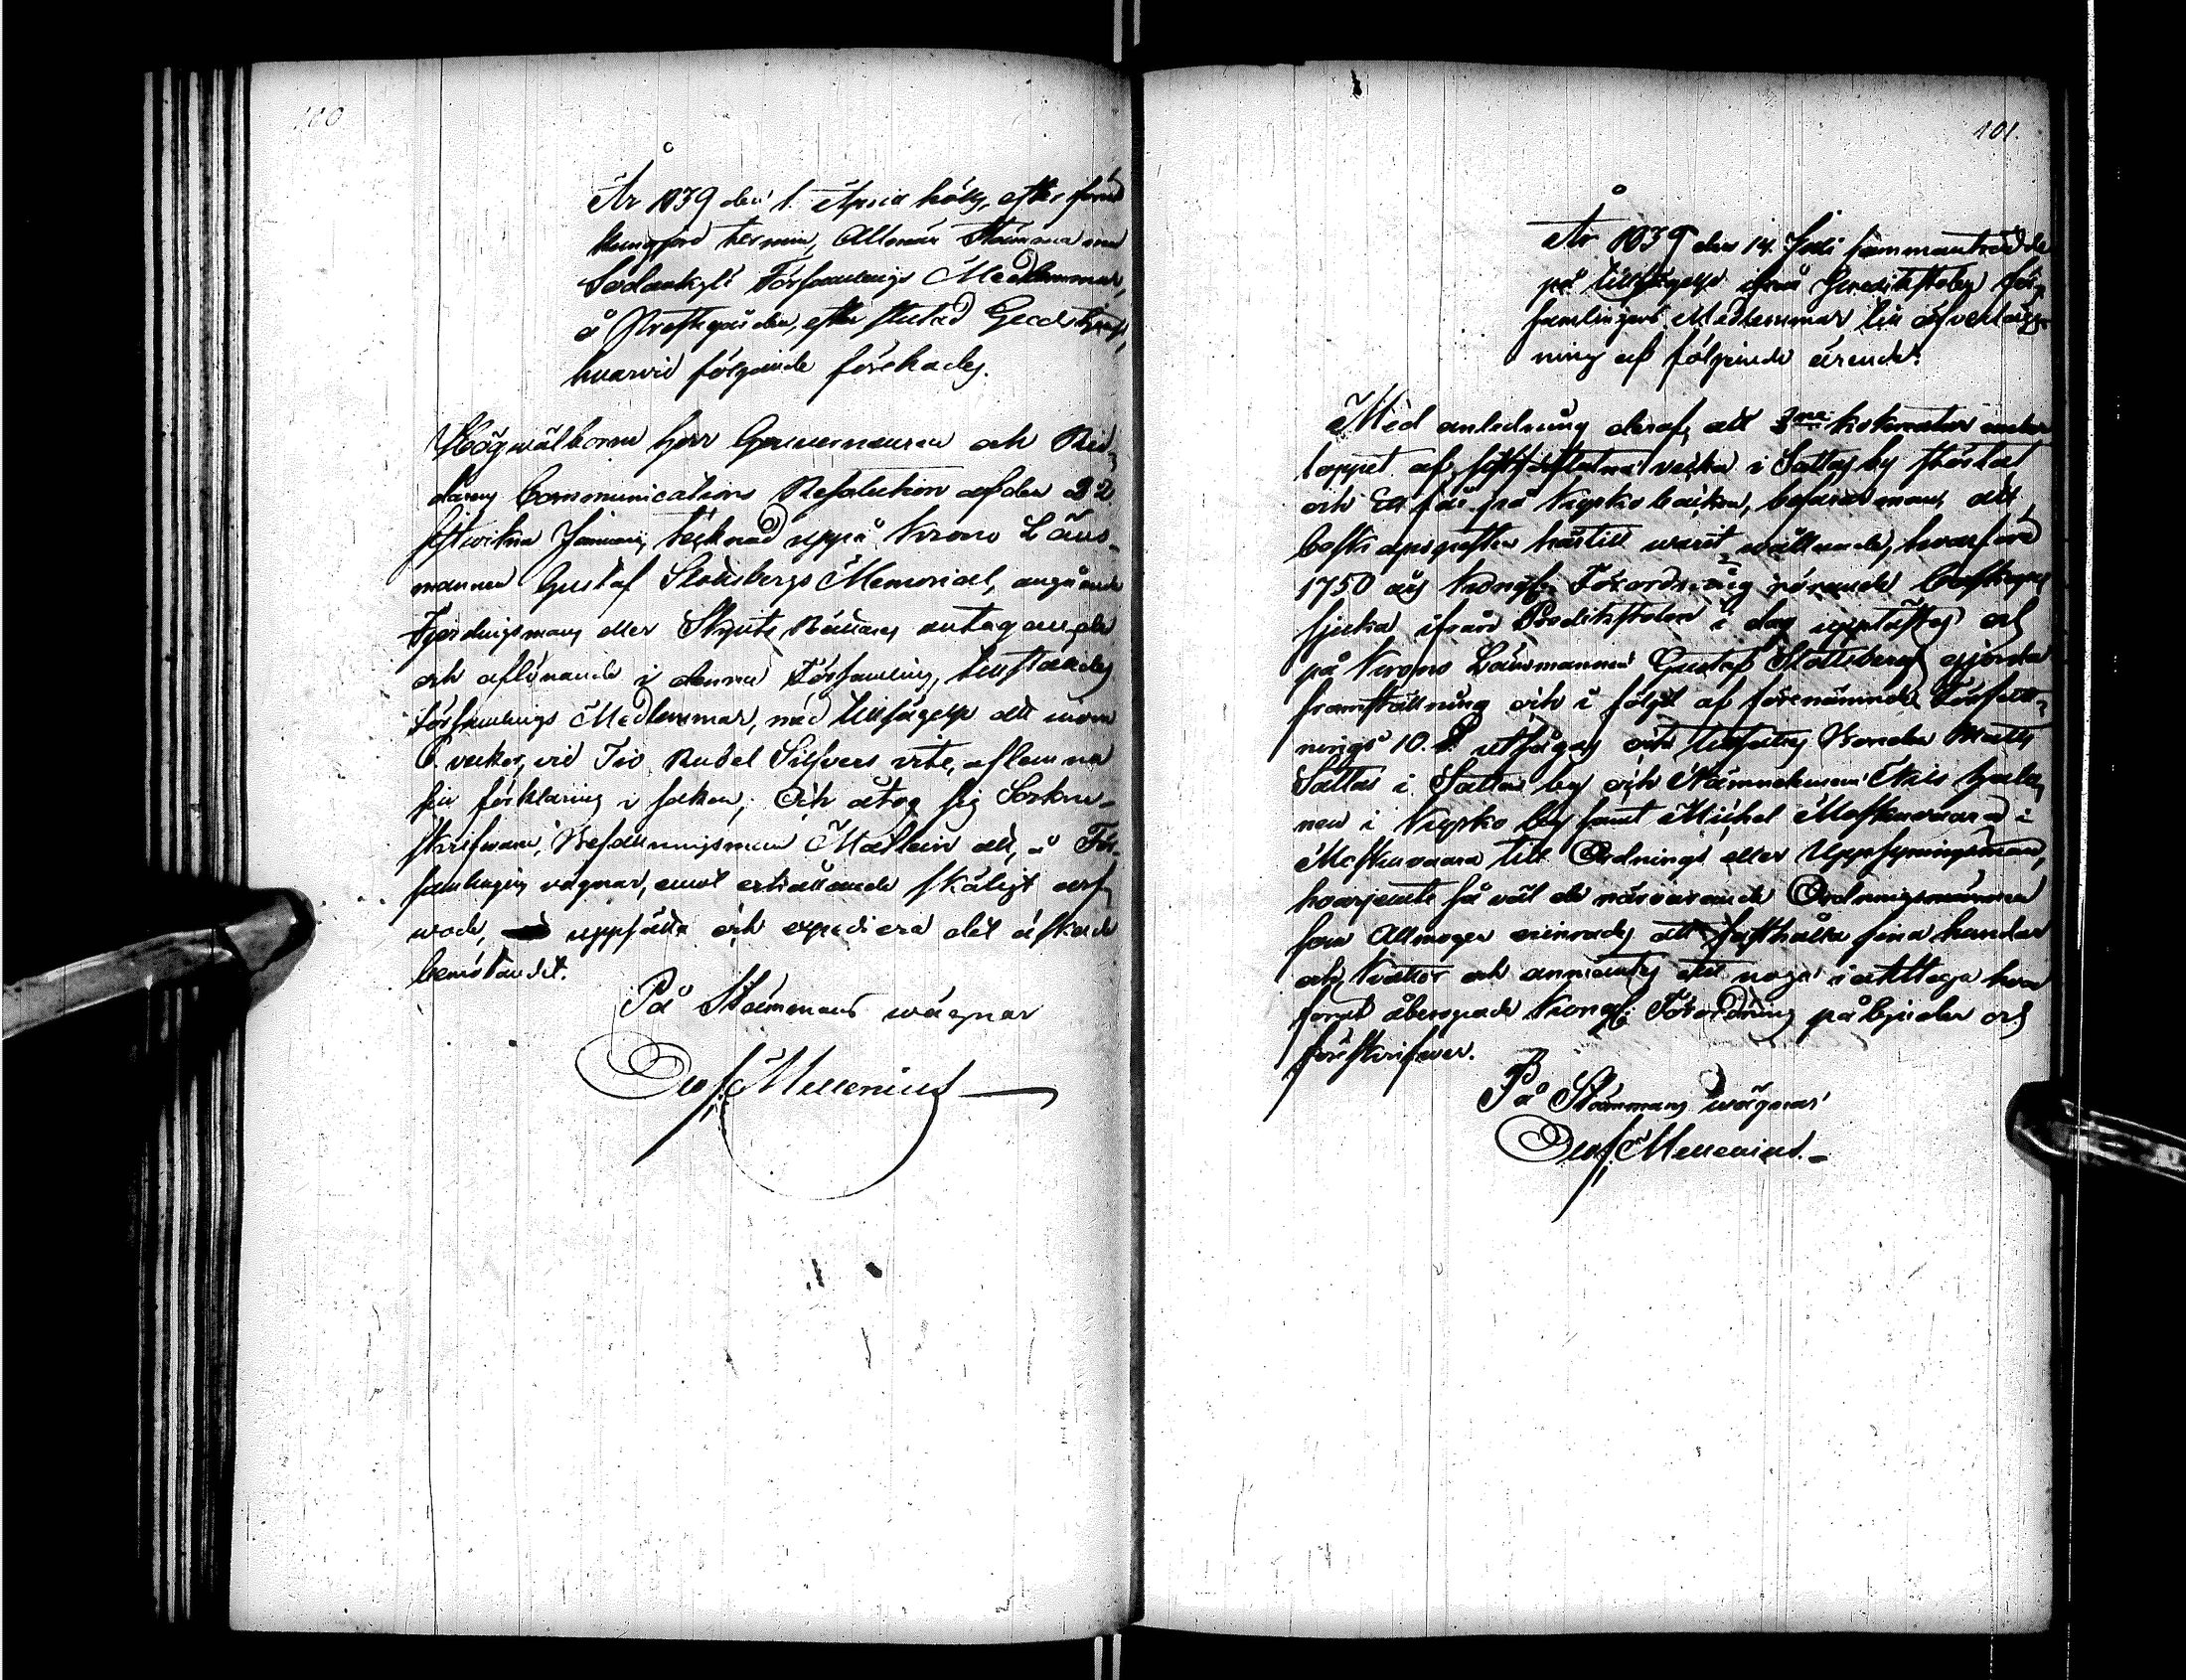 100
År 1839 den 1. April hölts, efter förut
kungjord termin, Allmän Stämma med
Sodankylä Församlings Medlemmar,
å Prestgården, efter slutad Gudstjenst,
hvarvid följande förehades.
Högvälborne Herr Gouverneuren och Rid-
darens Communications Resolution af den 22
sistvikne Januarii, tecknad uppå Krono Läns-
mannen Gustaf Slottsbergs Memorial, angående
Fjerdingsmans eller Skjuts Rättares antagande
och aflönande i denna Församling, tillställdes
Församlings Medlemmar, med tillsägelse att inom
6 veckor, vid Tio Rubel Silfvers vite, aflemna
sin förklaring i saken; Och åtog sig Sockne-
skrifvaren, Befallningsman Mathlein att, å För-
samlingens vägnar, emot erhållande skäligt arf-
wode, uppsätta och expediera det äskade
bemötandet.
På Stämmans wägnar
Olof Mellenius
101.
År 1839 den 14. Juli sammanträdde
på tillsägelse ifrån Predikstolen För-
samlingens Medlemmar till öfverlägg-
ning af följande ärende:
Med anledning deraf, att 3ne kokreatur under
loppet af sistförflutna vecka i Sattas by störtat
och Ett får på Kersko backen, befarar man, att
boskapspesten härtill warit wållande, hvarföre
1750 års Kongl. Förordning rörande Boskaps
sjuka ifrån Predikstolen i dag upplästes och
på Krono Länsmannen Gustaf Slottsbergs gjorda
framställning och i följd af förenämnde Författ-
nings 10. § utsågos och tillsattes Bonden Matts
Sattas i Sattas by och Nämndeman Nils
nen i Kersko by samt Michel Moskuvaara i
Moskuvaara till Ordnings eller Uppsyningsmän,
hvarjemte så väl de närvarande Ordningsmännen
som Allmogen erinrades att fasthålla sina hundar
och Kattor och anmantes att noga iakttaga hvad
förut åberopade Kongl. Förordning påbjuder och
föreskrifver.
På Stämmans wägnar
Olof Mellenius.